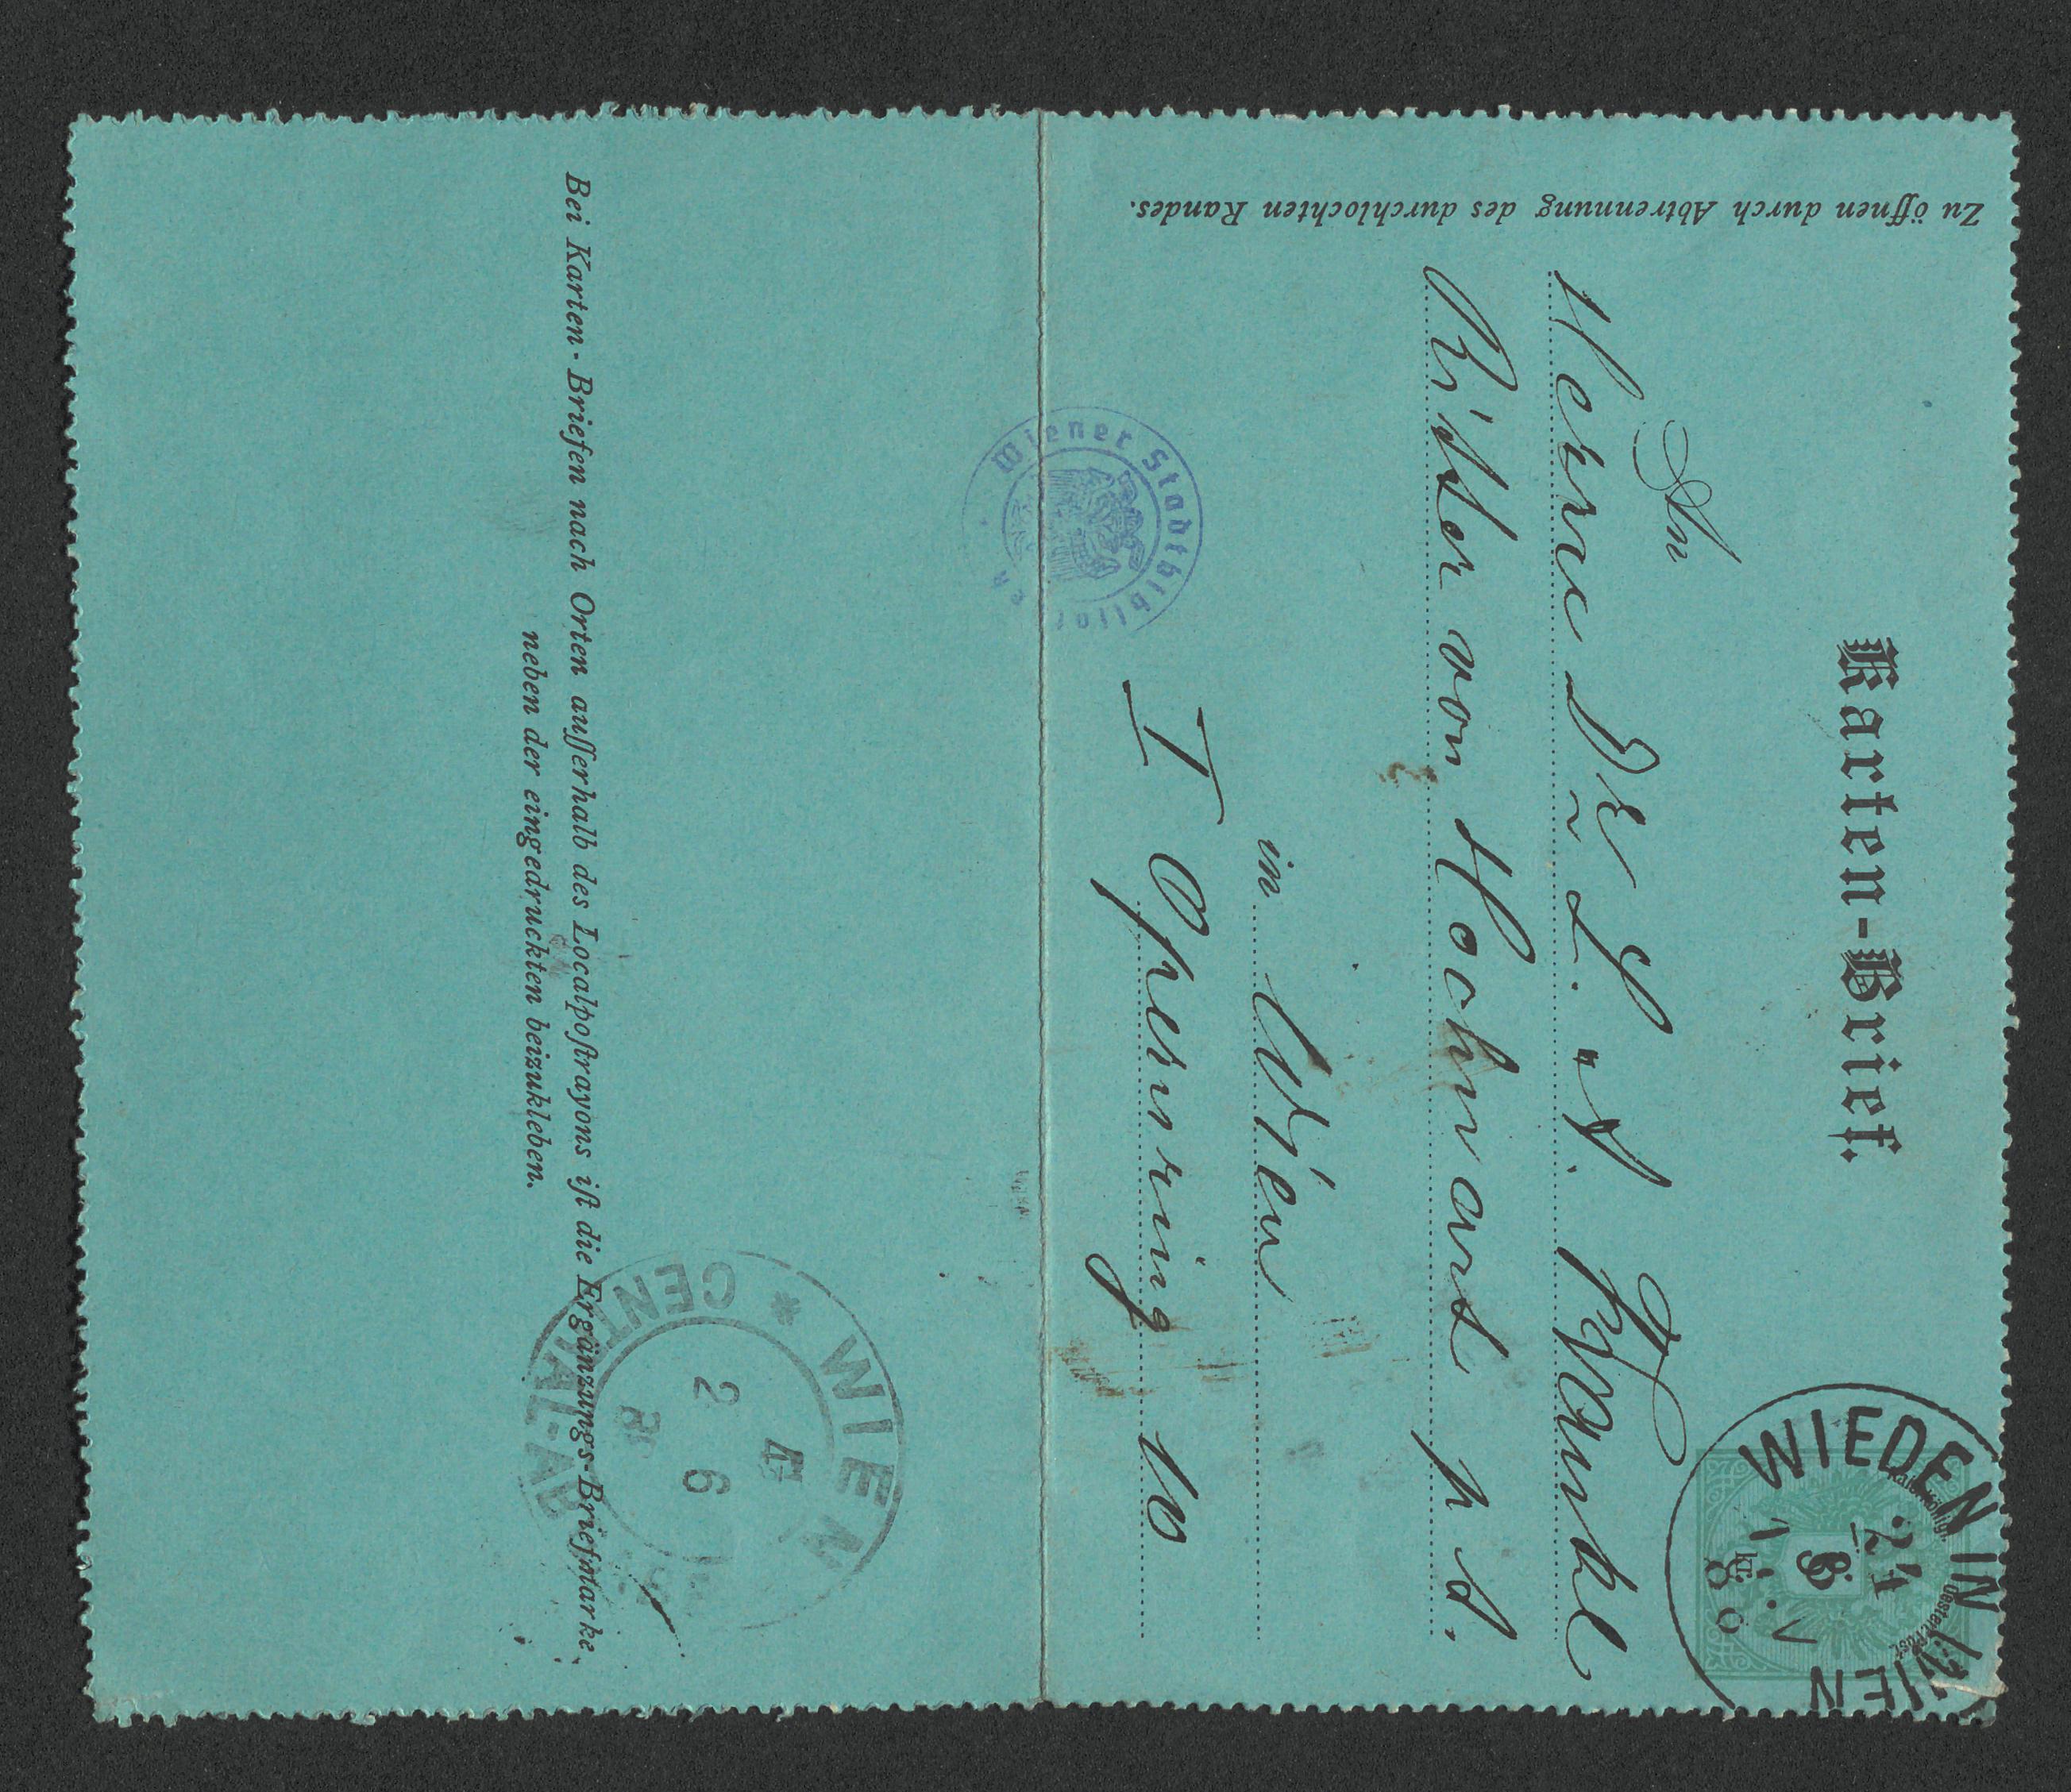 Karten-Brief.
An
Herrn Dr L. A. Frankl
Ritter von Hochwart p. t.
in Wien
I Opernring 10
Zu öffnen durch Abtrennung des durchlochten Randes.
WIEDEN IN WIEN
WIEN
24
kr
3
Wiener Stadtbibliothek
Bei Karten-Briefen nach Orten auſſerhalb des Localpoſtrayons iſt die Ergänzungs-Briefmarke
neben der eingedruckten beizukleben.
WIEN
CENTRAL-
2 6